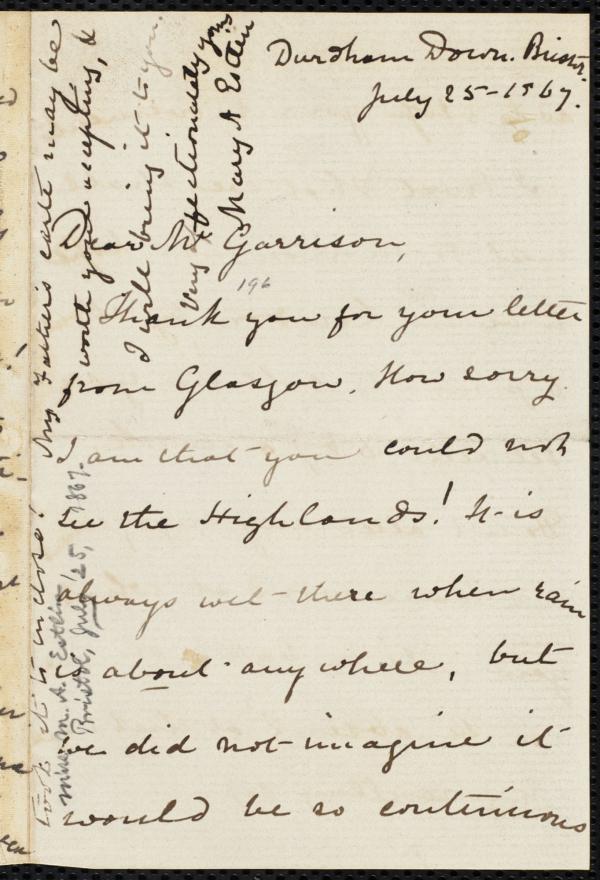 Durdham Down. Bristol.
July 25-1867.
Dear Mr Garrison,
196
Thank you for your letter
from Glasgow. How sorry
I am that you could not
see the Highlands! It is
always wet there when rain
is about anywhere, but
we did not imagine it
would be so continuous
took it to enclose! My Father's carte may be
worth your accepting, &
I will bring it to you.
Very affectionately yours
Mary A Estlin
Miss M. A. Estlin
Bristol, July 25, 1867.